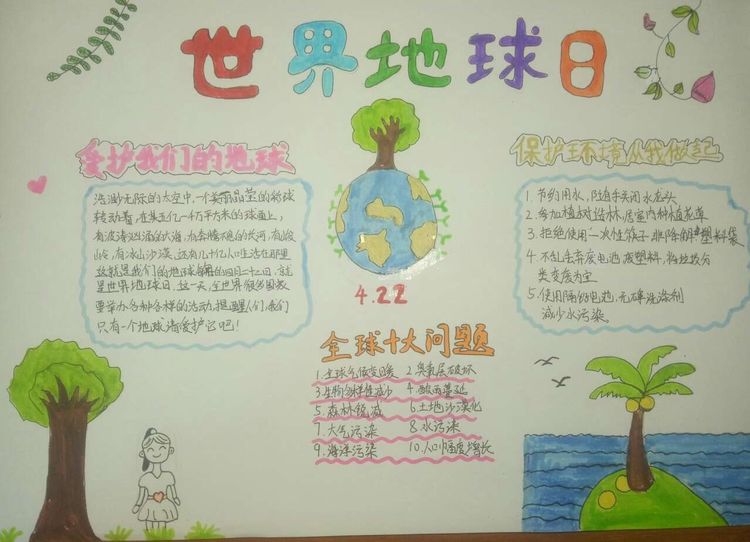 世界地球日
爱护我们的地球
浩渺无际的太空中,一个美丽晶莹的球
转动着,在其五亿一千万平方米的球面上,
有波涛汹涌的大海,有奔腾不息的长河,有峻
岭,有冰山沙漠,还有几十亿人口生活在那里
这就是我们的地球,每年的四月二十二日,就
是世界地球日,这一天,全世界很多国家
要举办各种各样的活动,提醒人们,我们
只有一个地球请爱护它吧!
4.22
保护环境从我做起
1.节约用水,随手关闭水龙头
2.参加植树造林,居室内种植花草
3.拒绝使用一次性筷子非降解塑料袋
4.不乱丢弃废电池废塑料,将垃圾分
类变废为宝
5.使用隔的电池,无磷洗涤剂
减少水污染
全球十大问题
1.全球气候变暖 2.臭氧层破坏
3.生物多样性减少 4.酸雨蔓延
5.森林锐减 6.土地沙漠化
7.大气污染 8.水污染
9.海洋污染 10.人口幅度增长